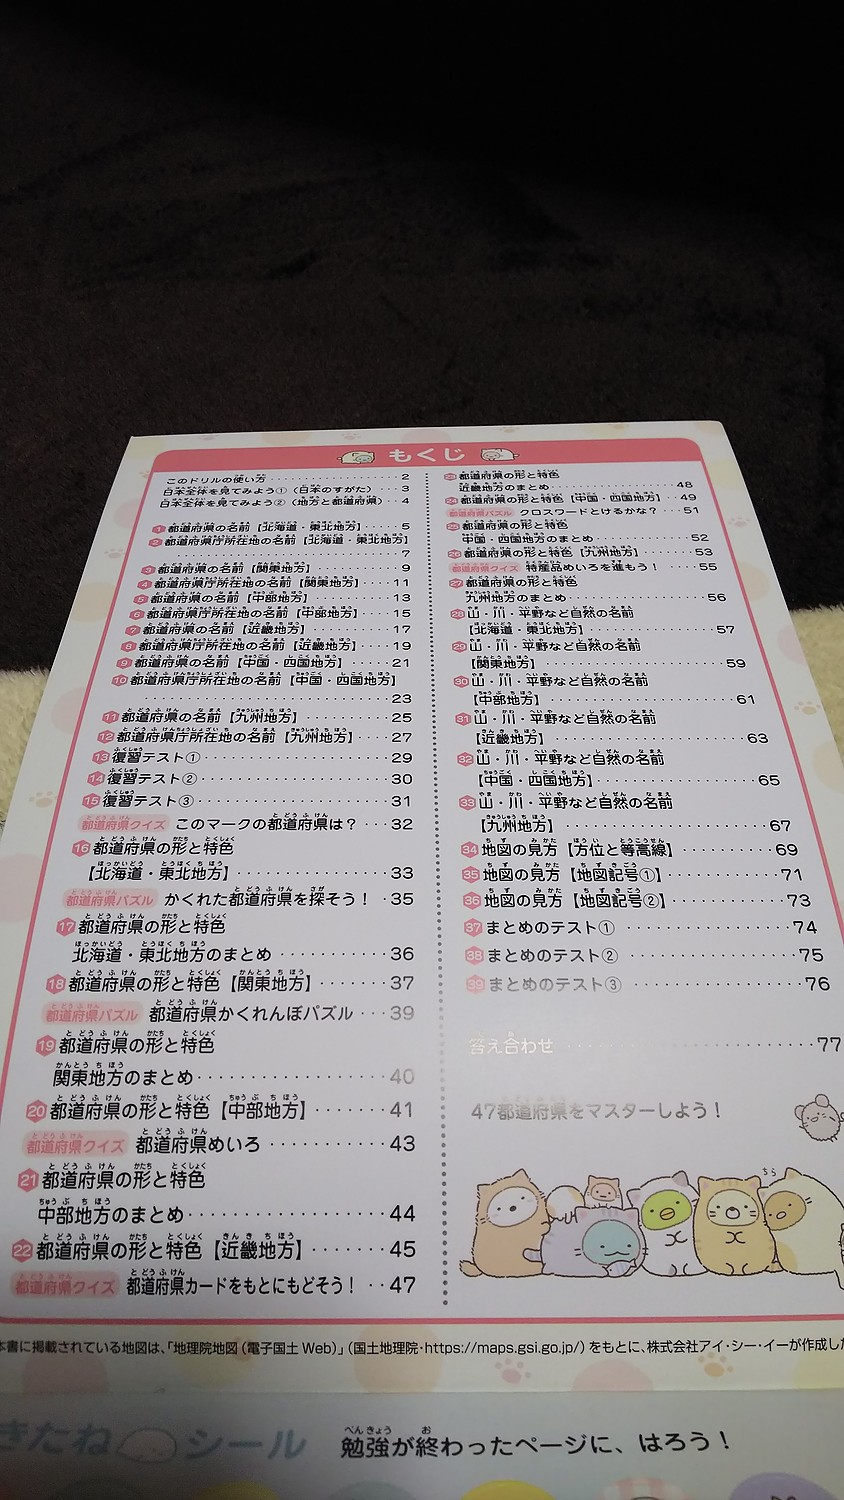 もくじ
このドリルの使い方 2
日本全体を見てみよう①（日本のすがた） 3
日本全体を見てみよう②（地方と都道府県） 4
1 都道府県の名前【北海道・東北地方】 5
2 都道府県庁所在地の名前【北海道・東北地方】
7
3 都道府県の名前【関東地方】 9
4 都道府県庁所在地の名前【関東地方】 11
5 都道府県の名前【中部地方】 13
6 都道府県庁所在地の名前【中部地方】 15
7 都道府県の名前【近畿地方】 17
8 都道府県庁所在地の名前【近畿地方】 19
9 都道府県の名前【中国・四国地方】 21
10 都道府県庁所在地の名前【中国・四国地方】
23
11 都道府県の名前【九州地方】 25
12 都道府県庁所在地の名前【九州地方】 27
13 復習テスト① 29
14 復習テスト② 30
15 復習テスト③ 31
都道府県クイズ このマークの都道府県は？ 32
16 都道府県の形と特色
【北海道・東北地方】 33
都道府県パズル かくれた都道府県を探そう！ 35
17 都道府県の形と特色
北海道・東北地方のまとめ 36
18 都道府県の形と特色【関東地方】 37
都道府県パズル 都道府県かくれんぼパズル 39
19 都道府県の形と特色
関東地方のまとめ 40
20 都道府県の形と特色【中部地方】 41
都道府県クイズ 都道府県めいろ 43
21 都道府県の形と特色
中部地方のまとめ 44
22 都道府県の形と特色【近畿地方】 45
都道府県クイズ 都道府県カードをもとにもどそう！ 47
23 都道府県の形と特色
近畿地方のまとめ 48
24 都道府県の形と特色【中国・四国地方】 49
都道府県パズル クロスワードとけるかな？ 51
25 都道府県の形と特色
中国・四国地方のまとめ 52
26 都道府県の形と特色【九州地方】 53
都道府県クイズ 特産品めいろを進もう！ 55
27 都道府県の形と特色
九州地方のまとめ 56
28 山・川・平野など自然の名前
【北海道・東北地方】 57
29 山・川・平野など自然の名前
【関東地方】 59
30 山・川・平野など自然の名前
【中部地方】 61
31 山・川・平野など自然の名前
【近畿地方】 63
32 山・川・平野など自然の名前
【中国・四国地方】 65
33 山・川・平野など自然の名前
【九州地方】 67
34 地図の見方【方位と等高線】 69
35 地図の見方【地図記号①】 71
36 地図の見方【地図記号②】 73
37 まとめのテスト① 74
38 まとめのテスト② 75
39 まとめのテスト③ 76
答え合わせ 77
47都道府県をマスターしよう！
本書に掲載されている地図は、「地理院地図（電子国土 Web）」（国土地理院・https://maps.gsi.go.jp/）をもとに、株式会社アイ・シー・イーが作成した
きたね シール 勉強が終わったページに、はろう！